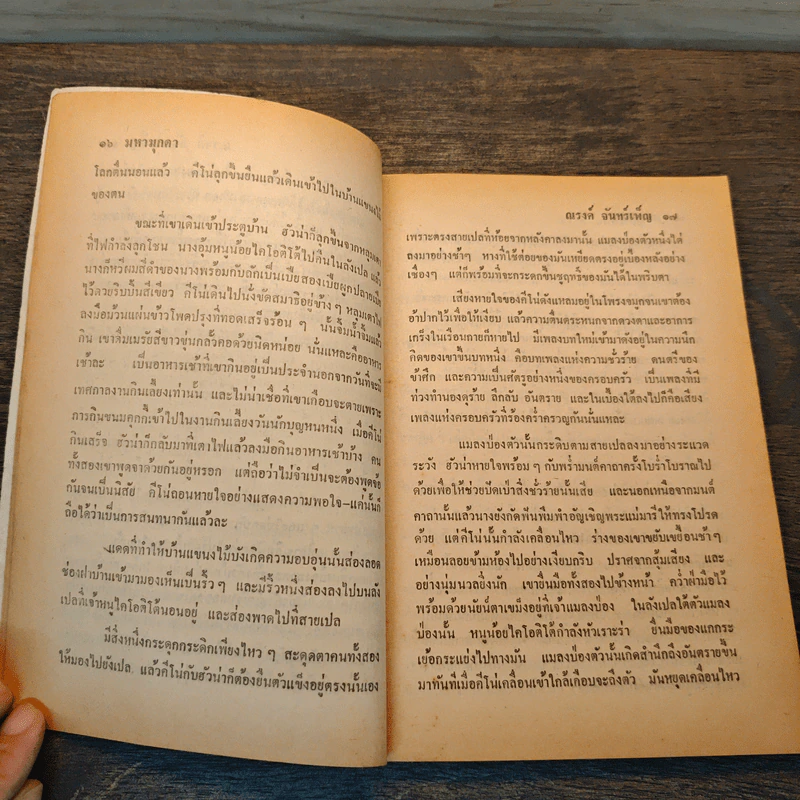 ๑๖ มหามุกดา
โลกตื่นนอนแล้ว คีโน่ลุกขึ้นยืนแล้วเดินเข้าไปในบ้านแขนงไม้
ของตน
ขณะที่เขาเดินเข้าประตูบ้าน ฮัวน่าก็ลุกขึ้นจากหลุมเตา
ที่ไฟกำลังลุกโชน นางอุ้มหนูน้อยไคโอติโต้ไปคืนในลังเปล แล้ว
นางก็หวีผมสีดำของนางพร้อมกับถักเป็นเปียสองเปียผูกปลายเปีย
ไว้ด้วยริบบิ้นสีเขียว คีโน่เดินไปนั่งขัดสมาธิอยู่ข้างๆ หลุมเตาไฟ
ลงมือม้วนแผ่นข้าวโพดปรุงที่ทอดเสร็จร้อน ๆ นั้นจิ้มน้ำจิ้มแล้ว
กิน เขาดื่มเมรัยสีขาวขุ่นกลั้วคอด้วยนิดหน่อย นั่นแหละคืออาหาร
เช้าละ เป็นอาหารเช้าที่เขากินอยู่เป็นประจำนอกจากวันที่จะมี
เทศกาลงานกินเลี้ยงเท่านั้น และไม่น่าเชื่อที่เขาเกือบจะตายเพราะ
การกินขนมคุกกี้เข้าไปในงานกินเลี้ยงวันนักบุญหนหนึ่ง เมื่อคีโน่
กินเสร็จ ฮัวน่าก็กลับมาที่เตาไฟแล้วลงมือกินอาหารเช้าบ้าง คน
ทั้งสองเขาพูดจาด้วยกันอยู่หรอก แต่ถือว่าไม่จำเป็นจะต้องพูดจ้อ
กันจนเป็นนิสัย คีโน่ถอนหายใจอย่างแสดงความพอใจ—แค่นั้นก็
ถือได้ว่าเป็นการสนทนากันแล้วละ
แดดที่ทำให้บ้านแขนงไม้บังเกิดความอบอุ่นนั้นส่องลอด
ช่องฝาบ้านเข้ามามองเห็นเป็นริ้วๆ และมีริ้วหนึ่งส่องลงไปบนลัง
เปลที่เจ้าหนูไคโอติโต้นอนอยู่ และส่องพาดไปที่สายเปล
มีสิ่งหนึ่งกระดุกกระดิกเพียงไหว ๆ สะดุดตาคนทั้งสอง
ให้มองไปยังเปล แล้วคีโน่กับฮัวน่าก็ต้องยืนตัวแข็งอยู่ตรงนั้นเอง
ณรงค์ จันทร์เพ็ญ ๑๗
เพราะตรงสายเปลที่ห้อยจากหลังคาลงมานั้น แมลงป่องตัวหนึ่งไต่
ลงมาอย่างช้าๆ หางที่ใช้ต่อยของมันเหยียดตรงอยู่เบื้องหลังอย่าง
เชื่องๆ แต่ก็พร้อมที่จะกระดกขึ้นชูฤทธิ์ของมันได้ในพริบตา
เสียงหายใจของคีโน่ดังแหลมอยู่ในโพรงจมูกจนเขาต้อง
อ้าปากไว้เพื่อให้เงียบ แล้วความตื่นตระหนกจากดวงตาและอาการ
เกร็งในเรือนกายก็หายไป มีเพลงบทใหม่เข้ามาดังอยู่ในความนึก
คิดของเขาขึ้นบทหนึ่ง คือบทเพลงแห่งความชั่วร้าย ดนตรีของ
ข้าศึก และความเป็นศัตรูอย่างหนึ่งของครอบครัว เป็นเพลงที่มี
ท่วงทำนองดุร้าย ลึกลับ อันตราย และในเบื้องใต้ลงไปก็คือเสียง
เพลงแห่งครอบครัวที่ร้องคร่ำครวญกันนั่นแหละ
แมลงป่องตัวนั้นกระดิบตามสายเปลลงมาอย่างระแวด
ระวัง ฮัวน่าหายใจพร้อม ๆ กับพร่ำมนต์คาถาครั้งโบร่ำโบราณไป
ด้วยเพื่อให้ช่วยปัดเป่าสิ่งชั่วร้ายนั้นเสีย และนอกเหนือจากมนต์
คาถานั้นแล้วนางยังกัดฟันพึมพำอัญเชิญพระแม่มารีให้ทรงโปรด
ด้วย แต่คีโน่นั้นกำลังเคลื่อนไหว ร่างของเขาขยับเขยื้อนช้าๆ
เหมือนลอยข้ามห้องไปอย่างเงียบกริบ ปราศจากสุ้มเสียง และ
อย่างนุ่มนวลยิ่งนัก เขายื่นมือทั้งสองไปข้างหน้า คว่ำฝ่ามือไว้
พร้อมด้วยนัยน์ตาเขม็งอยู่ที่เจ้าแมลงป่อง ในลังเปลใต้ตัวแมลง
ป่องนั้น หนูน้อยไคโอติโต้กำลังหัวเราะร่า ยื่นมือของแกกระ
เย้อกระแย่งไปทางมัน แมลงป่องตัวนั้นเกิดสำนึกถึงอันตรายขึ้น
มาทันทีเมื่อคีโน่เคลื่อนเข้าใกล้เกือบจะถึงตัว มันหยุดเคลื่อนไหว